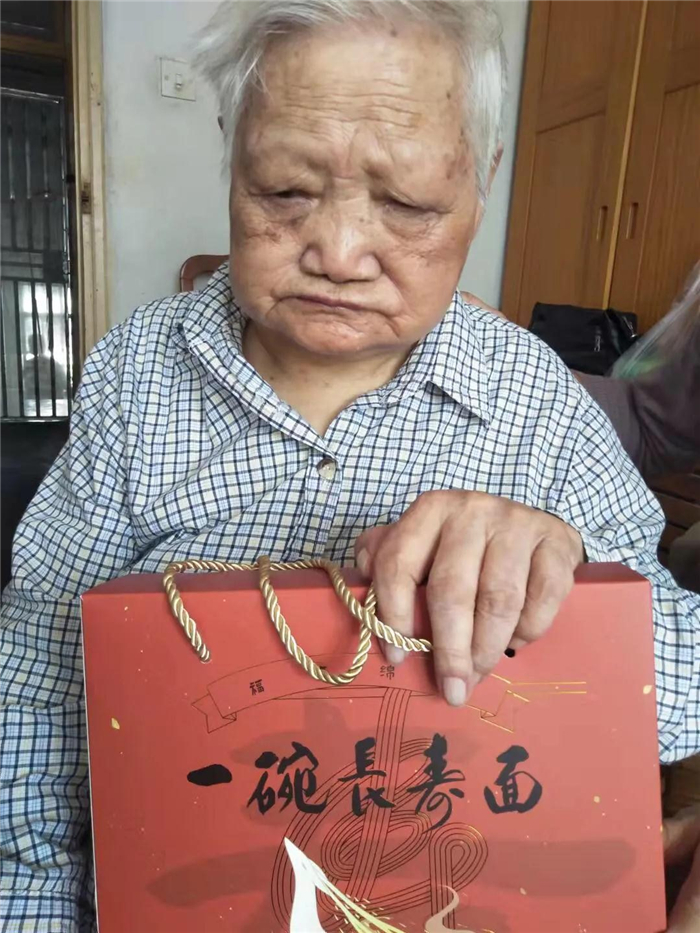 福 绵
一碗長寿面